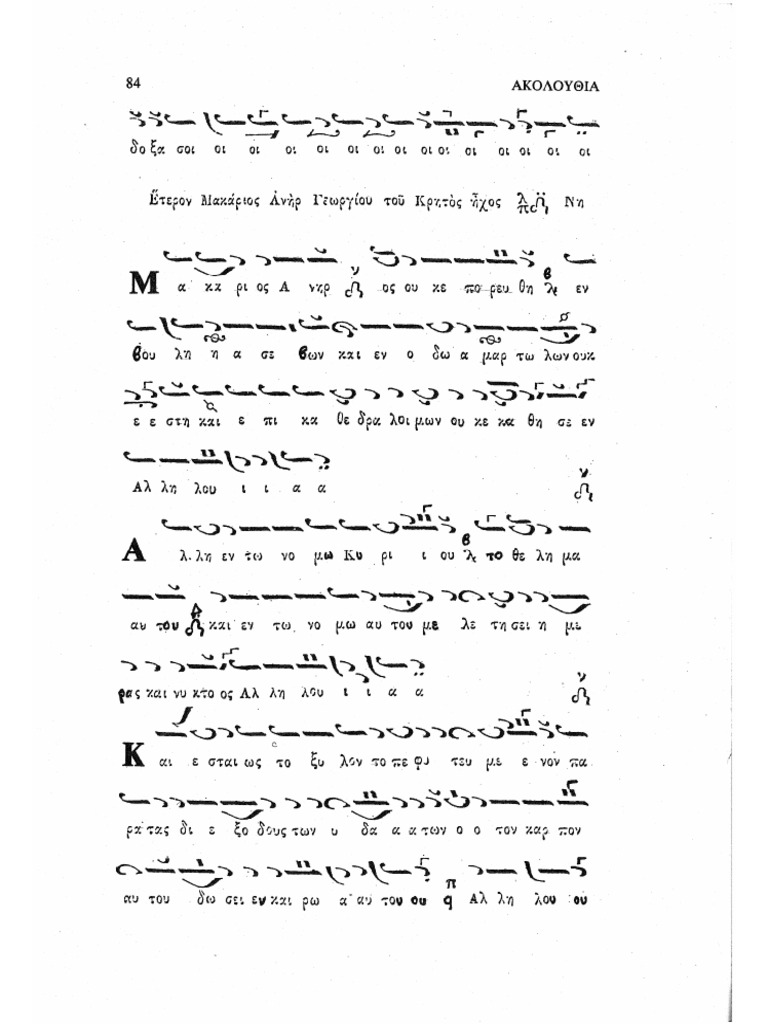 84 ΑΚΟΛΟΥΘΙΑ
δο ξα σοι οι οι οι οι οι οι οι οι οι οι οι οι οι οι
Ἕτερον Μακάριος Ἀνὴρ Γεωργίου τοῦ Κρητὸς ἦχος Νη
Μ α κα ρι ος Α νηρ ος ου κ ε πο ρευ θη εν
βου λη η α σε βων και εν ο δω α μαρ τω λων ουκ
ε ε στη και ε πι κα θε δρα λοι μων ου κ ε κα θη σε εν
Αλ λη λου ι ι α α
Α λ λη εν τω νο μω Κυ ρι ι ου το θε λη μα
αυ του και εν τω νο μω αυ του με λε τη σει η με
ρας και νυ κτο ος Αλ λη λου ι ι α α
Κ αι ε σται ως το ξυ λον το πε φυ τευ με ε νον πα
ρα τας δι ε ξο δους των υ δα α α των ο ο τον καρ πον
αυ του δω σει εν και ρω α αυ του ου Αλ λη λου ου